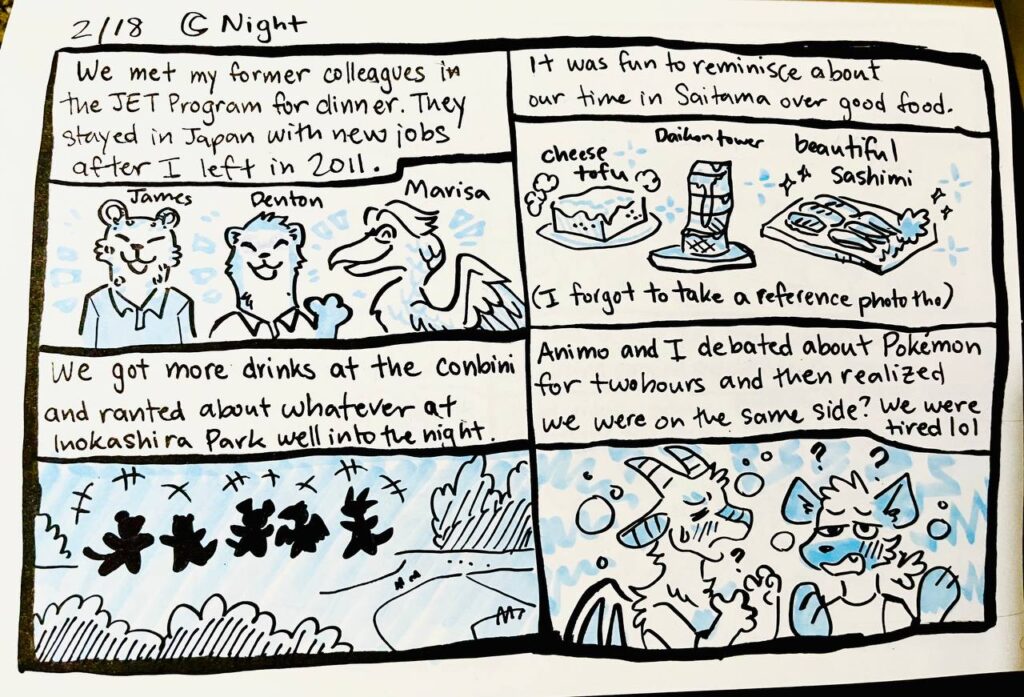 2/18 @ Night
We met my former colleagues in
the JET Program for dinner. They
stayed in Japan with new jobs
after I left in 2011.
James
Denton
Marisa
It was fun to reminisce about
our time in Saitama over good food.
cheese
tofu
Daikon tower
beautiful
Sashimi
(I forgot to take a reference photo tho)
We got more drinks at the conbini
and ranted about whatever at
Inokashira Park well into the night.
Animo and I debated about Pokémon
for two hours and then realized
we were on the same side? We were
tired lol
? ?
?